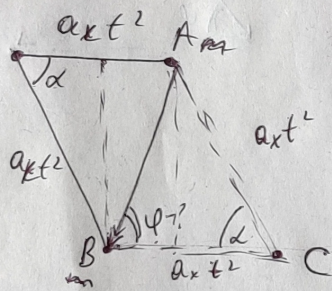 aₓt²
A
α
aₓt²
aₓt²
φ-?
α
B
aₓt²
C